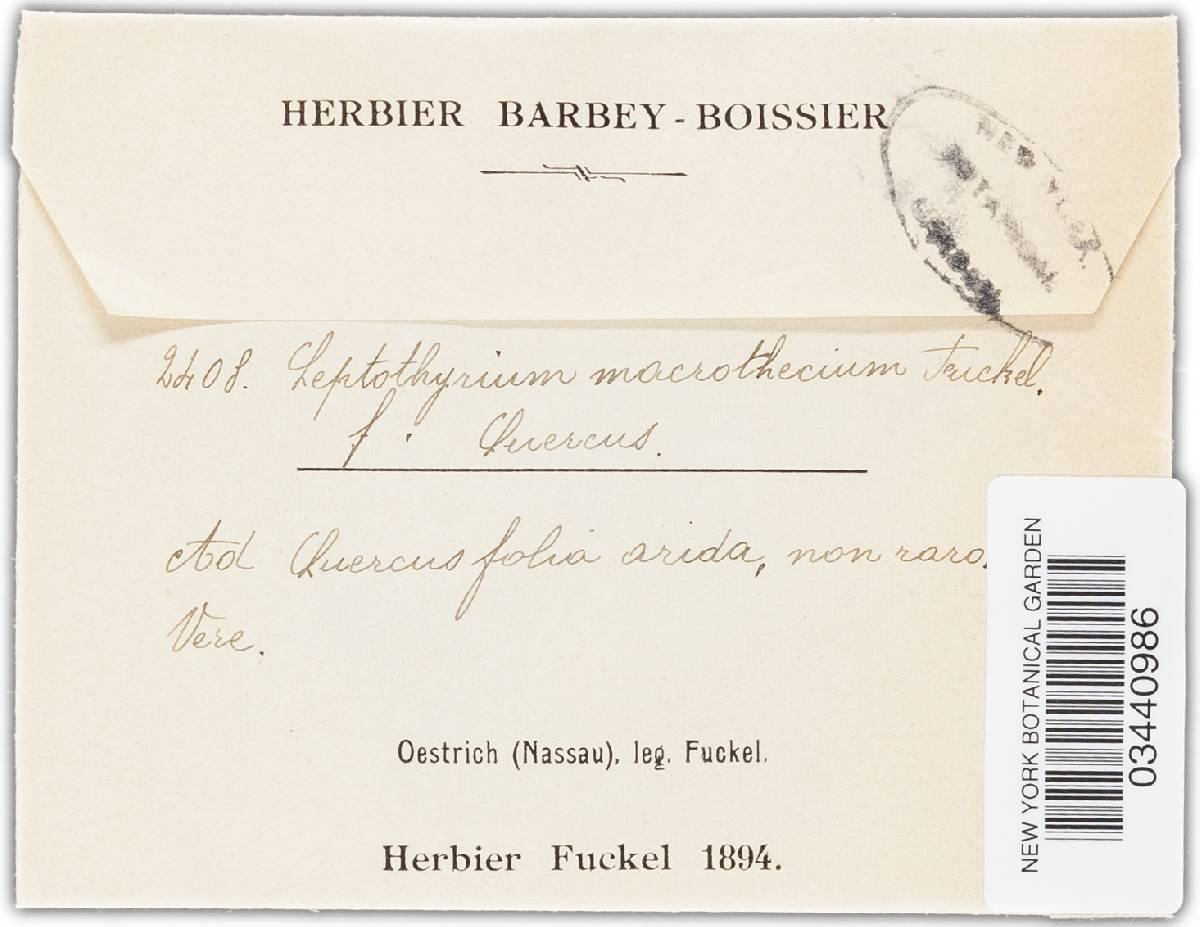 HERBIER BARBEY-BOISSIER
NEW YORK
BOTANICAL
GARDEN
2408. Leptothyrium macrothecium Fuckel.
f. Quercus.
Ad Quercus folia arida, non raro.
Vere.
Oestrich (Nassau), leg. Fuckel.
Herbier Fuckel 1894.
NEW YORK BOTANICAL GARDEN
03440986